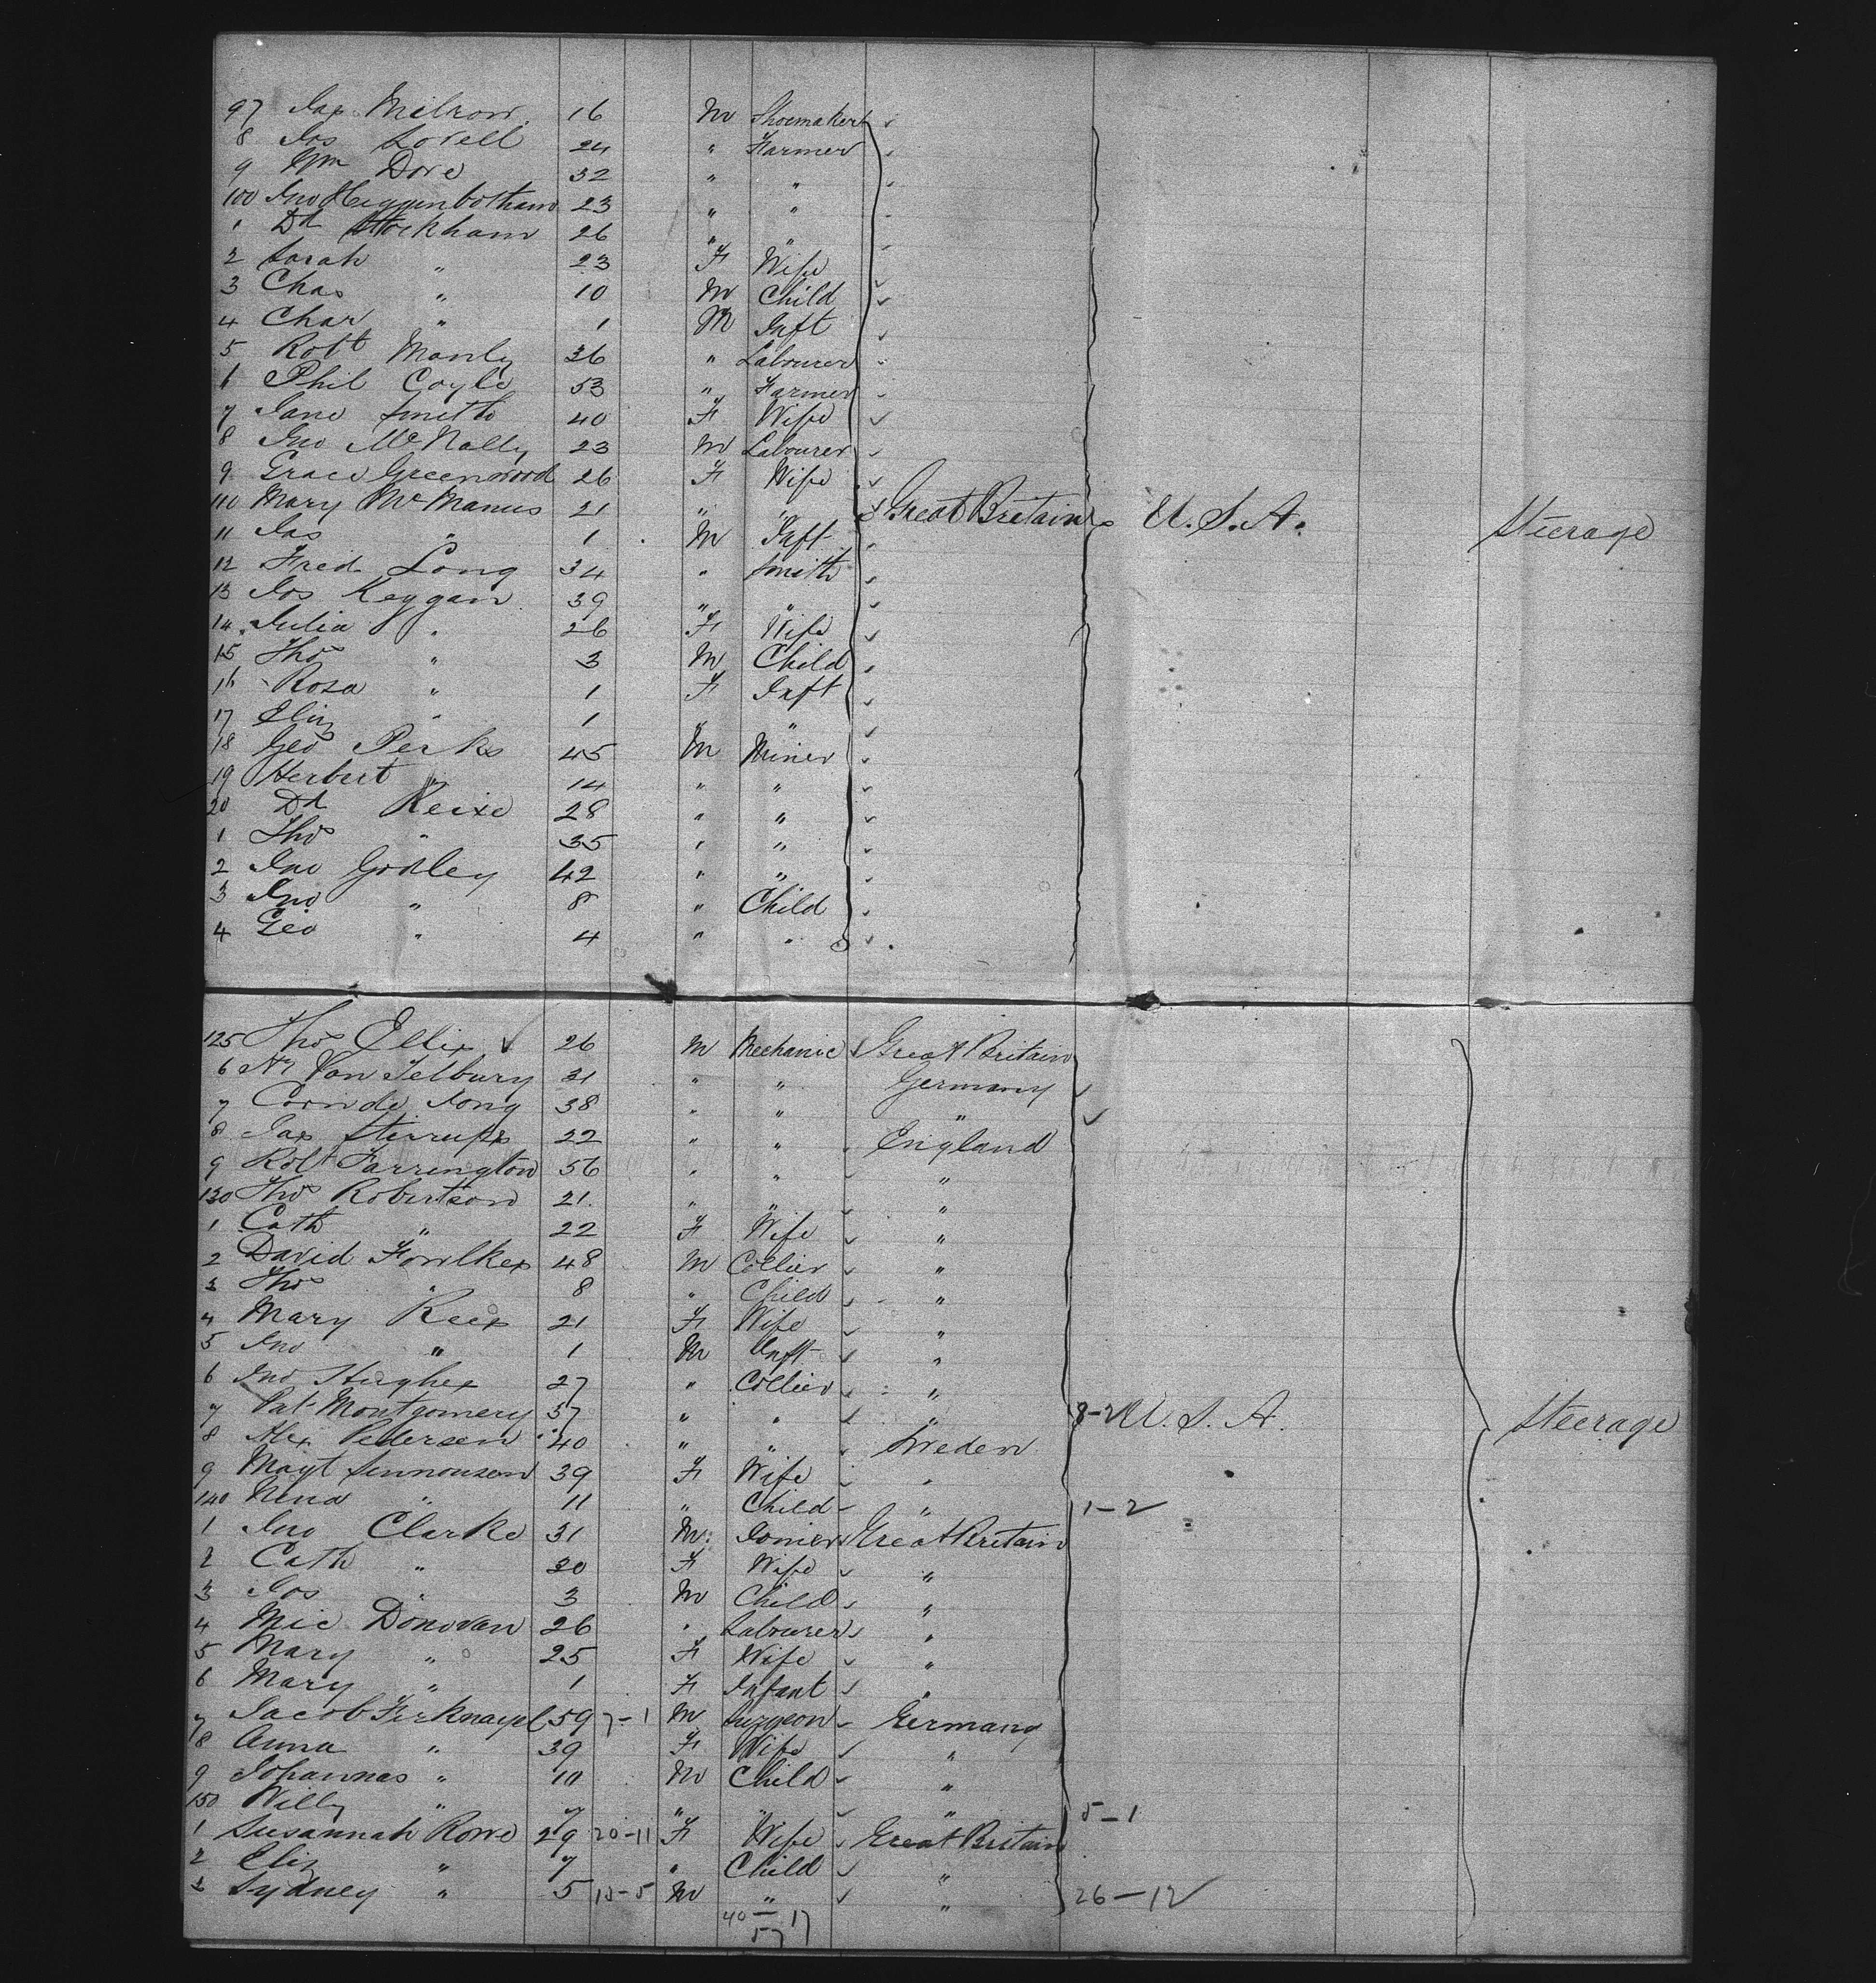 97 Jas Milrow. 16 M Shoemaker
8 Jos Lovell 24 " Farmer
9 Wm Dove 32 " "
100 Jno Higginbotham 23 " "
1 Dd Stockham 26 " "
2 Sarah " 23 F Wife
3 Chas " 10 M Child
4 Char " 1 M Inft
5 Robt Manly 36 " Labourer
6 Phil Coyle 53 " Farmer
7 Jane Smith 40 F Wife
8 Jno McNally 23 M Labourer
9 Grace Greenwood 26 F Wife
110 Mary McManus 21 " " Great Britain U.S.A. Steerage
11 Jas " 1 M Inft
12 Fred Long 34 " Smith
13 Jos Keggan 39 " "
14 Julia " 26 F Wife
15 Thos " 3 M Child
16 Rosa " 1 F Inft
17 Eliz " 1 "
18 Geo Perks 45 M Miner
19 Herbert " 14 " "
20 Dd Reixe 28 " "
1 Thos " 35 " "
2 Jno Godley 42 " "
3 Jno " 8 " Child
4 Geo " 4 " "
125 Thos Ellis 26 M Mechanic Great Britain
6 Van Telbury 31 " " Germany
7 Corn de Jong 38 " " "
8 Jas Stirrups 22 " " England
9 Robt Farrington 56 " " "
130 Thos Robertson 21 " " "
1 Cath " 22 F Wife "
2 David Fowlkes 48 M Collier "
3 Thos " 8 " Child "
4 Mary Rees 21 F Wife "
5 Jno " 1 M Inft "
6 Jno Hughes 27 " Collier "
7 Pat Montgomery 37 " " " 8-2 U.S.A. Steerage
8 Alex Pedersen 40 " " Sweden
9 Magt Sennousen 39 F Wife "
140 Nina " 11 " Child " 1-2
1 Jno Clarke 31 M Joiner Great Britain
2 Cath " 30 F Wife "
3 Jos " 3 M Child "
4 Mic Donovan 26 " Labourer "
5 Mary " 25 F Wife "
6 Mary " 1 F Infant "
7 Jacob 59 7-1 M Surgeon Germany
8 Anna " 39 F Wife "
9 Johannas " 10 M Child "
150 Willy " 7 " " " 5-1
1 Susannah Rowe 29 20-11 F Wife Great Britain
2 Eliz " 7 " Child "
3 Sydney " 5 13-5 M " " 26-12
40 — 17
57